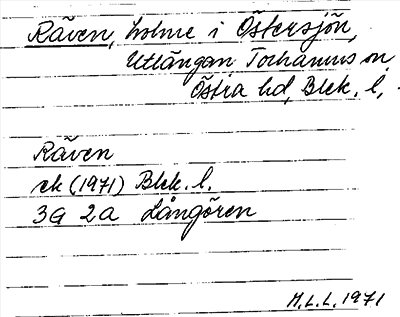 Räven, holme i Östersjön,
Utlängan Torhamns sn,
Östra hd, Blek. l.
Räven
ek (1971) Blek. l.
3G 2a Långören
M.L.L. 1971